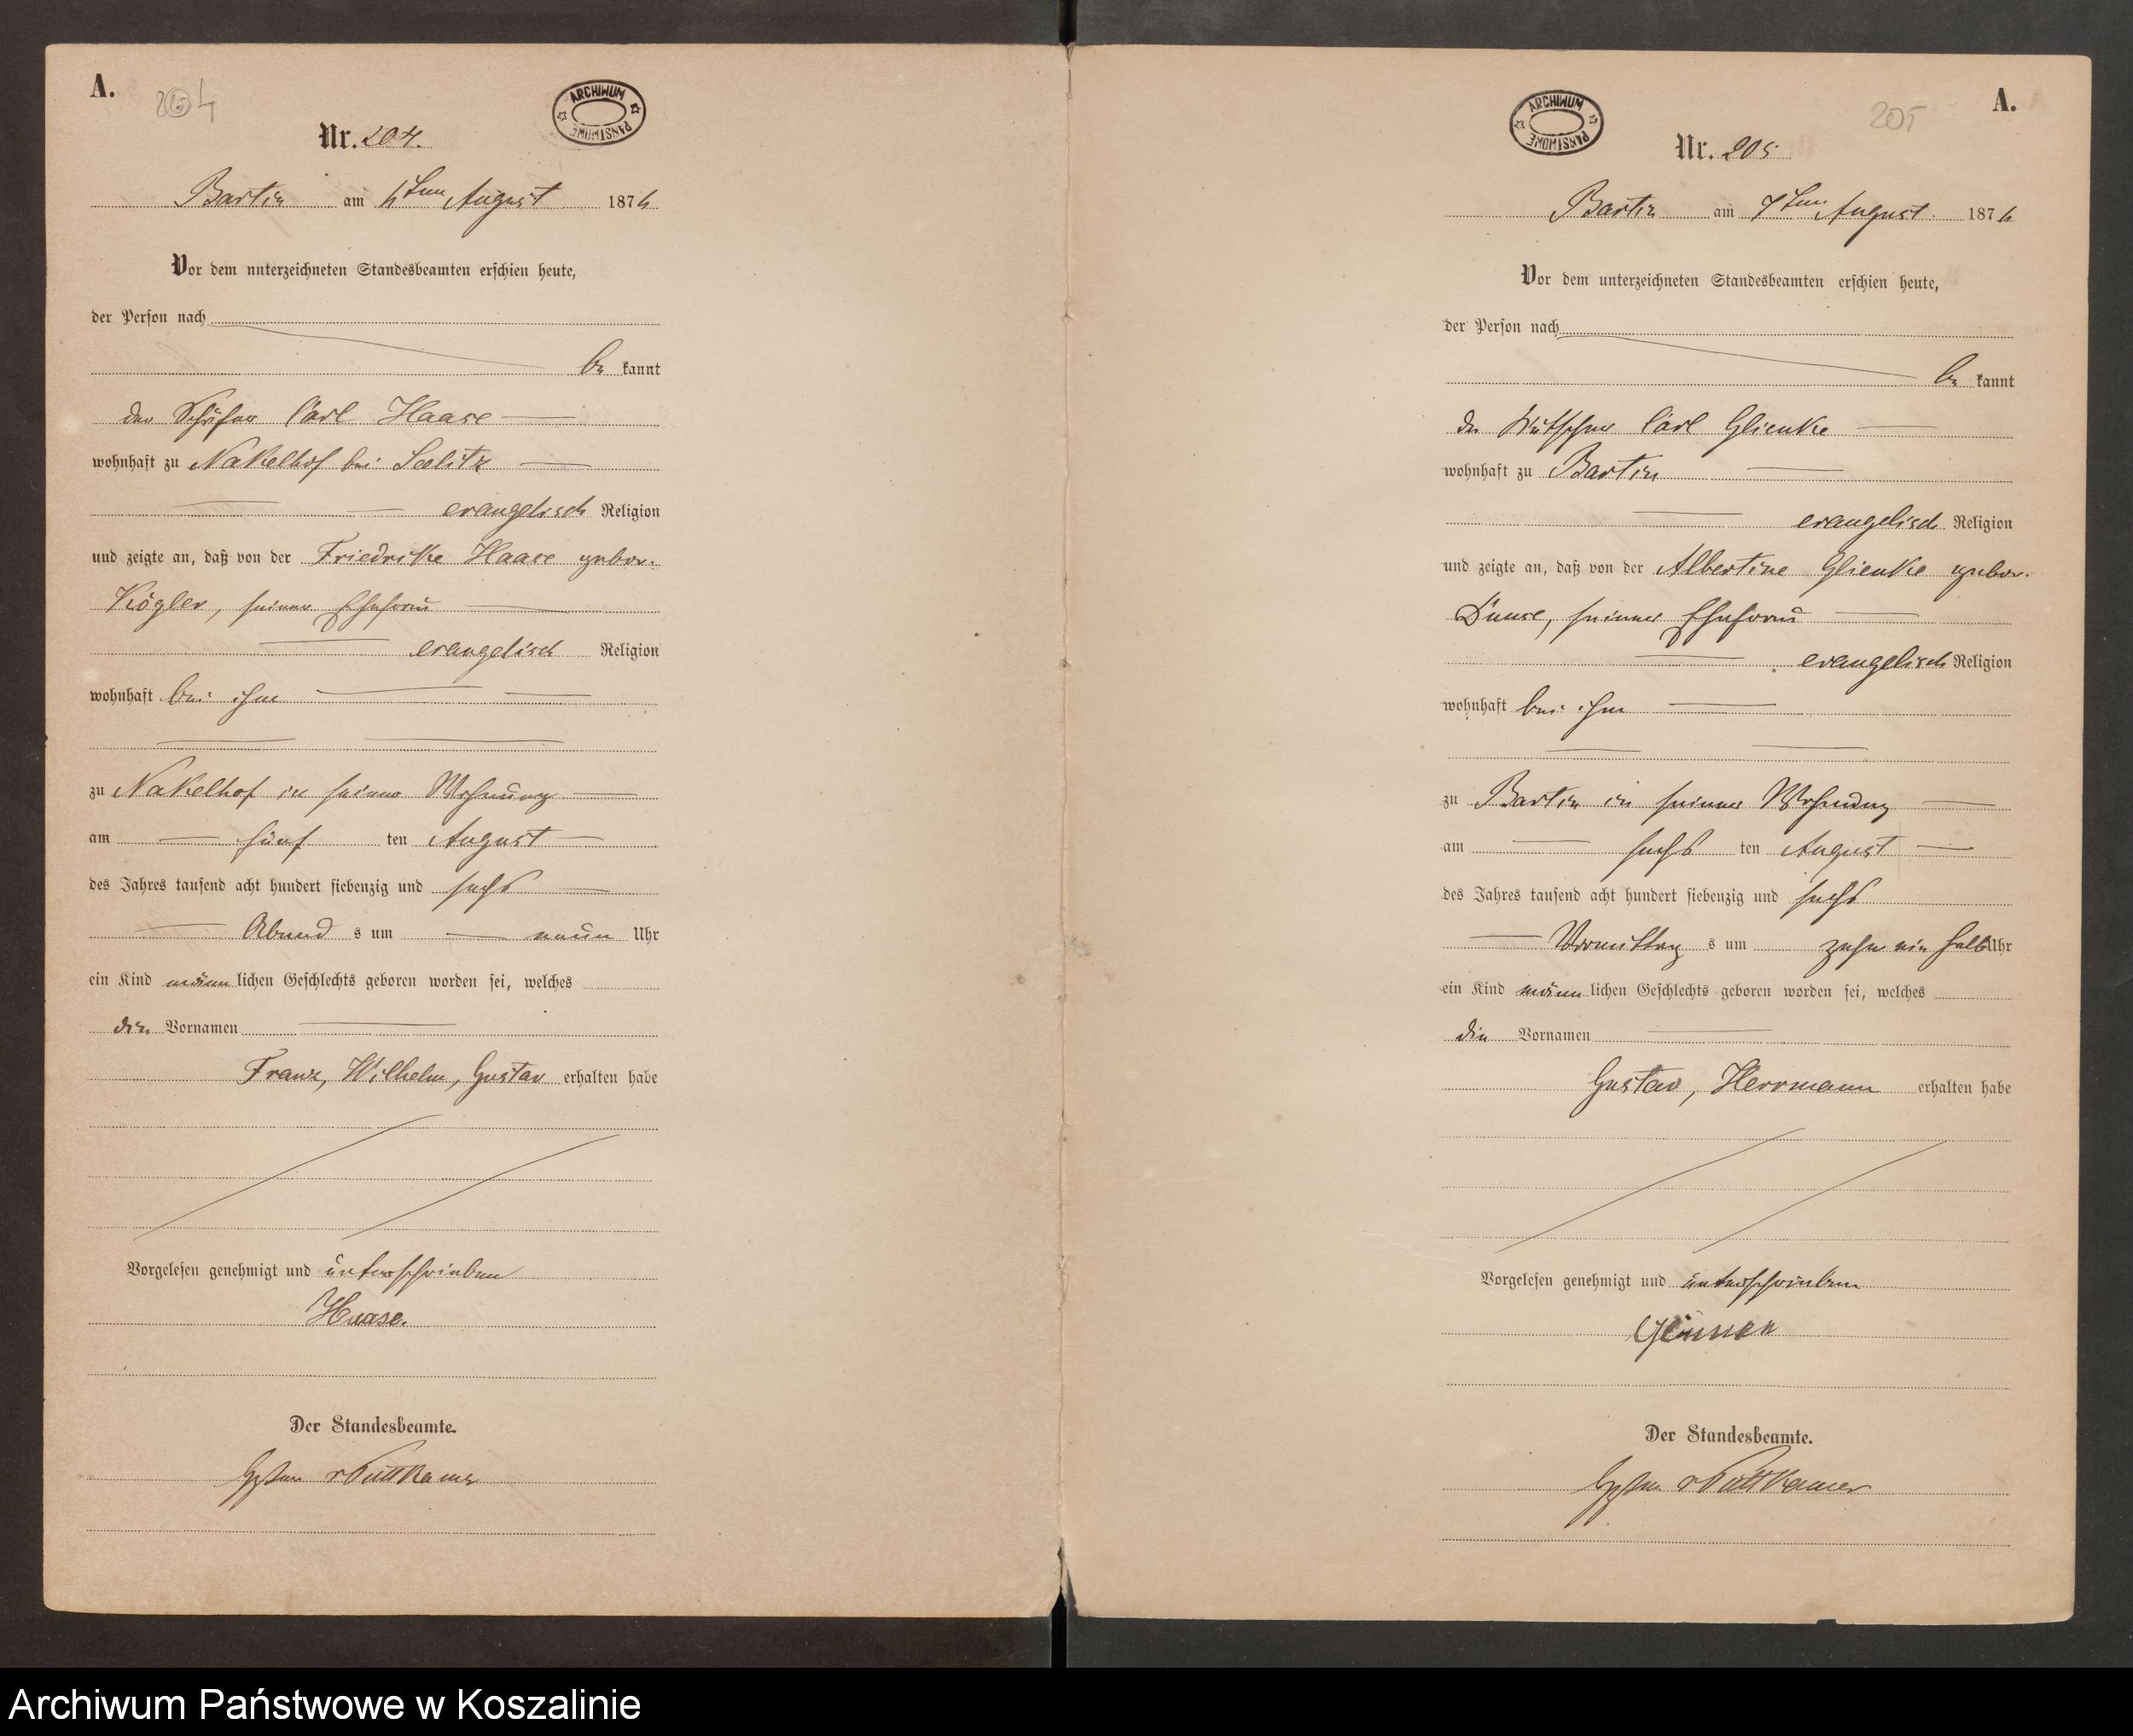 A.
204
ARCHIWUM PAŃSTWOWE
Nr. 204.
Bartin am 6ten August 1876
Vor dem unterzeichneten Standesbeamten erschien heute,
der Person nach
be kannt
der Schäfer Carl Haase
wohnhaft zu Nakelhof bei Seelitz
evangelisch Religion
und zeigte an, daß von der Friedrike Haase gebor.
Kögler, seiner Ehefrau
evangelisch Religion
wohnhaft bei ihm
zu Nakelhof in seiner Wohnung
am fünf ten August
des Jahres tausend acht hundert siebenzig und sechs
Abend s um neun Uhr
ein Kind männ lichen Geschlechts geboren worden sei, welches
die Vornamen
Franz, Wilhelm, Gustav erhalten habe
Vorgelesen genehmigt und unterschrieben
Haase.
Der Standesbeamte.
v Puttkamer
A.
205
ARCHIWUM PAŃSTWOWE
Nr. 205
Bartin am 7ten August 1876
Vor dem unterzeichneten Standesbeamten erschien heute,
der Person nach
be kannt
der Carl Glienke
wohnhaft zu Bartin
evangelisch Religion
und zeigte an, daß von der Albertine Glienke gebor.
seiner Ehefrau
evangelisch Religion
wohnhaft bei ihm
zu Bartin in seiner Wohnung
am sechs ten August
des Jahres tausend acht hundert siebenzig und sechs
Vormittag s um zehn ein halb Uhr
ein Kind männ lichen Geschlechts geboren worden sei, welches
die Vornamen
Gustav, Herrmann erhalten habe
Vorgelesen genehmigt und unterschrieben
Der Standesbeamte.
v Puttkamer
Archiwum Państwowe w Koszalinie